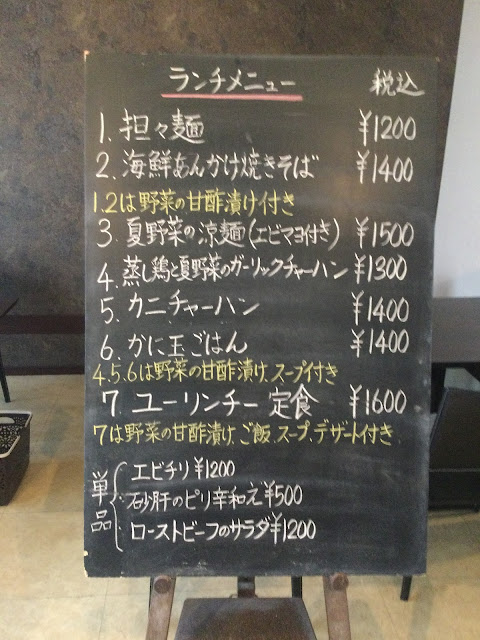 ランチメニュー 税込
1. 担々麺 ¥1200
2. 海鮮あんかけ焼きそば ¥1400
1.2は野菜の甘酢漬け付き
3. 夏野菜の涼麺(エビマヨ付き) ¥1500
4. 蒸し鶏と夏野菜のガーリックチャーハン ¥1300
5. カニチャーハン ¥1400
6. かに玉ごはん ¥1400
4.5.6は野菜の甘酢漬け、スープ付き
7. ユーリンチー定食 ¥1600
7は野菜の甘酢漬け、ご飯、スープ、デザート付き、
単品
エビチリ ¥1200
砂肝のピリ辛和え ¥500
ローストビーフのサラダ ¥1200